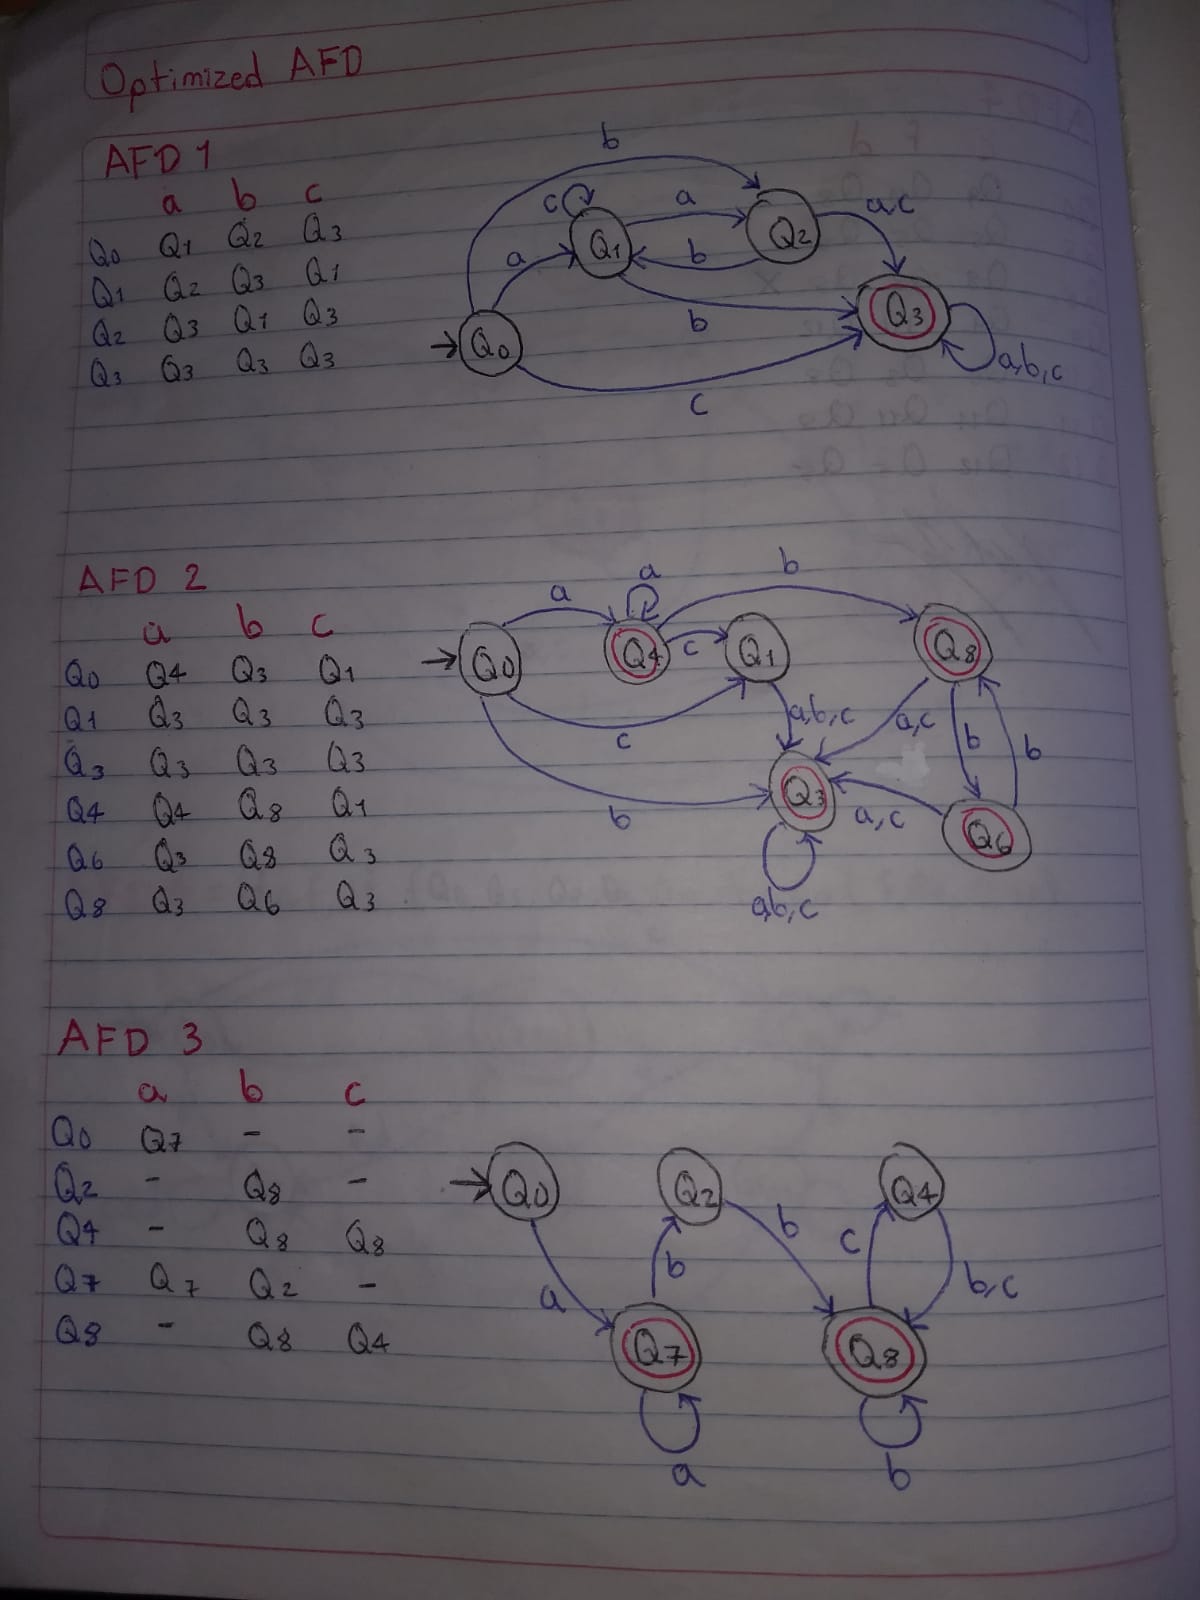 Optimized AFD
AFD 1
a b c
Q0 Q1 Q2 Q3
Q1 Q2 Q3 Q1
Q2 Q3 Q1 Q3
Q3 Q3 Q3 Q3
b
c a a,c
Q1 Q2
a b
Q3
b
Q0
a,b,c
c
AFD 2
a b c
Q0 Q4 Q3 Q1
Q1 Q3 Q3 Q3
Q3 Q3 Q3 Q3
Q4 Q4 Q8 Q1
Q6 Q3 Q8 Q3
Q8 Q3 Q6 Q3
a a b
Q0 Q4 c Q1 Q8
c a,b,c a,c b b
b Q3 a,c Q6
a,b,c
AFD 3
a b c
Q0 Q7 - -
Q2 - Q8 -
Q4 - Q8 Q8
Q7 Q7 Q2 -
Q8 - Q8 Q4
Q0 Q2 Q4
a b b c b,c
Q7 Q8
a b